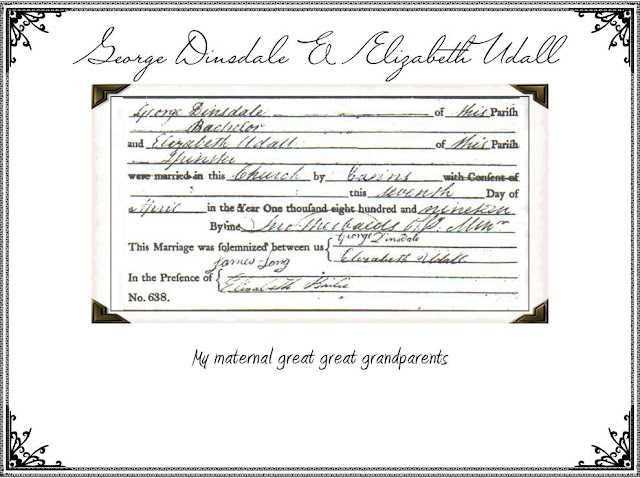 George Dinsdale & Elizabeth Udall
George Dinsdale of this Parish
Bachelor
and Elizabeth Udall of this Parish
Spinster
were married in this Church by Banns with Consent of
this seventh Day of
April in the Year One thousand eight hundred and nineteen
By me,
This Marriage was solemnized between us { George Dinsdale
Elizabeth Udall
James Long
In the Presence of {
Elizabeth
No. 638.
My maternal great great grandparents